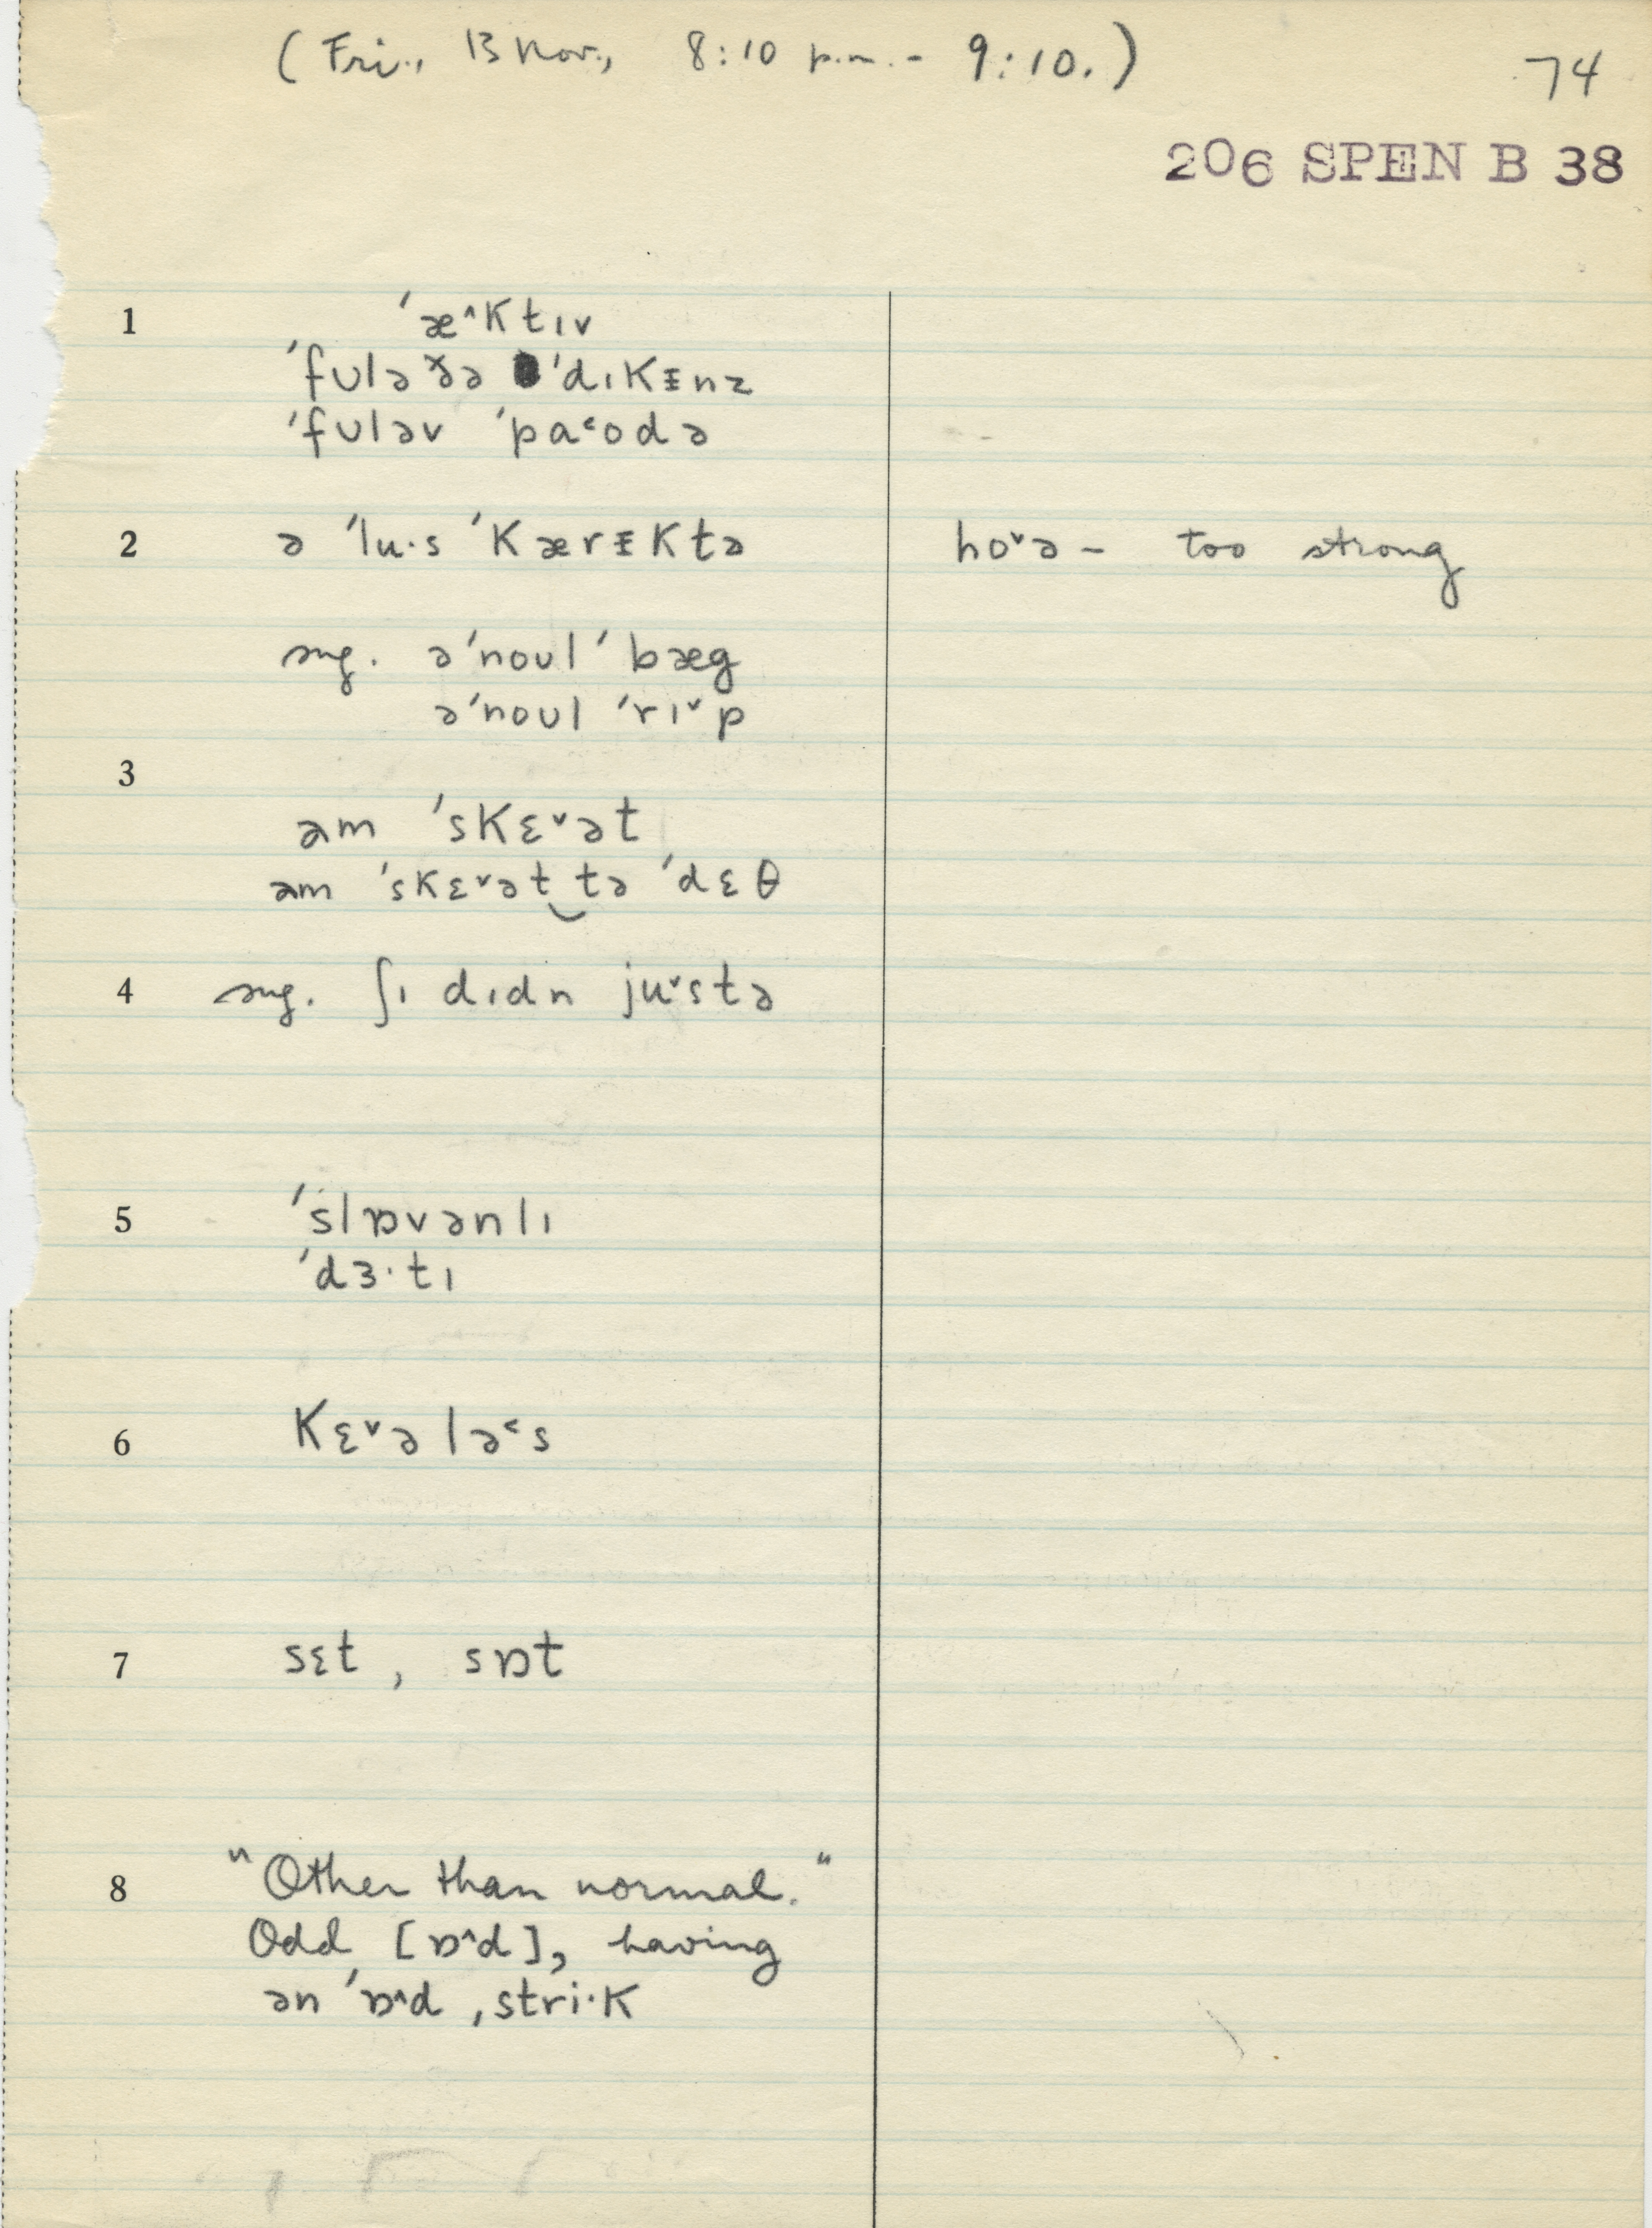 (Fri., 13 Nov., 8:10 p.m. - 9:10.)
74
206 SPEN B 38
1 ˈæ^ktɪv
ˈfʊləðə ˈdɪkᵻnz
ˈfʊləv ˈpa˂ʊdə
2 ə ˈlu·s ˈkærᵻktə hoˇə – too strong
sug. əˈnoʊl ˈbæg
əˈnoʊl ˈrɪˇp
3
əm ˈskɛˇət
əm ˈskɛˇət‿tə ˈdɛθ
4 sug. ʃɪ dɪdn juˇstə
5 ˈslɒvənlɪ
ˈdɜ·tɪ
6 kɛˇələ˂s
7 sɛt, sɒt
8 "Other than normal."
Odd [ɒ^d], having
ən ˈɒ^d ˌstri·k